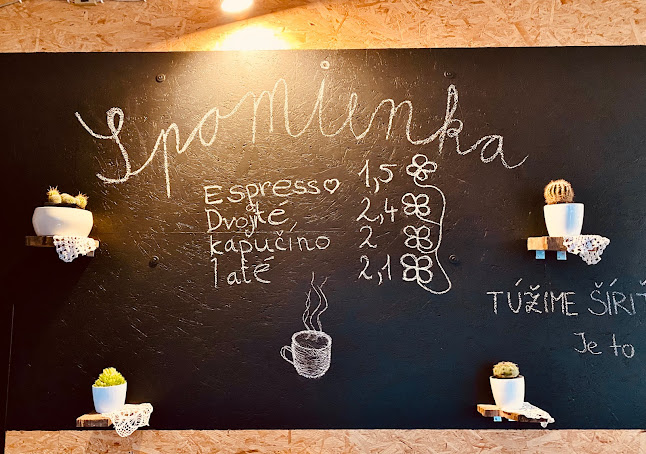 Spomienka
Espresso 1,5
Dvojté 2,4
kapučíno 2
laté 2,1
TÚŽIME ŠÍRIŤ
Je to